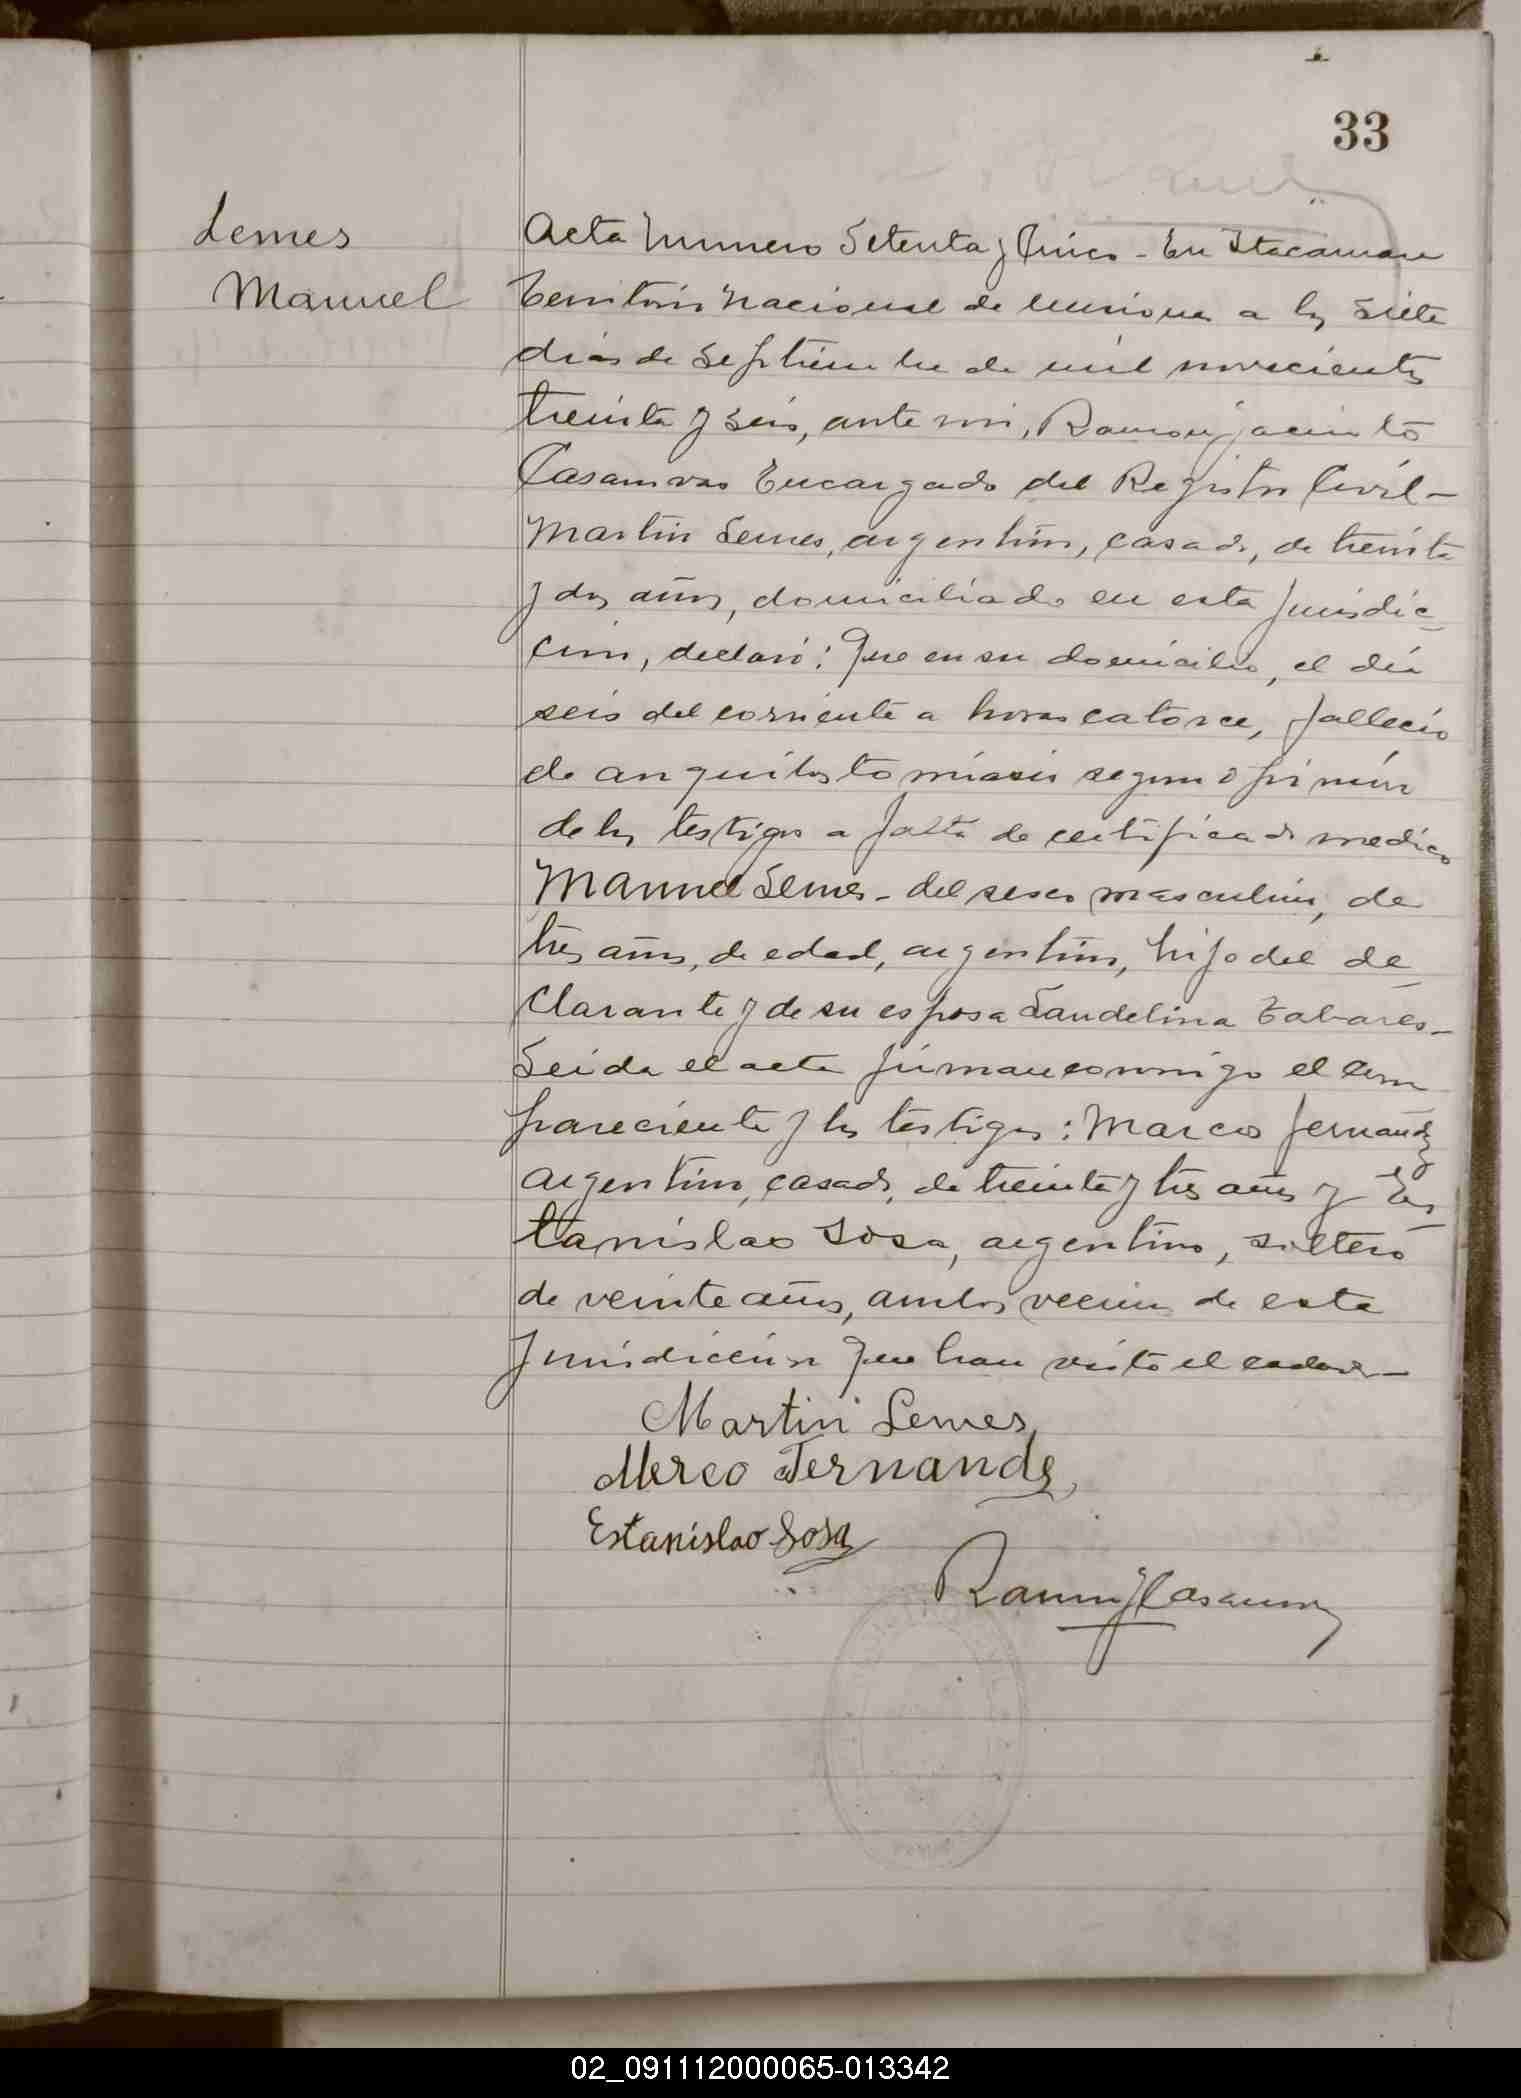 33
Lemes
Manuel
Acta Numero Setenta y Cinco - En Itacaruare
Territorio Nacional de Misiones a los siete
dias de Septiembre de mil novecientos
treinta y seis, ante mi, Ramon Jacinto
Casanovas Encargado del Registro Civil -
Martin Lemes, argentino, casado, de treinta
y dos años, domiciliado en esta jurisdic-
ción, declaró: Que en su domicilio, el día
seis del corriente a horas catorce, falleció
de anquilostomiasis segun opinión
de los testigos a falta de certificado medico
Manuel Lemes - del sexo masculino, de
tres años, de edad, argentino, hijo del de-
clarante y de su esposa Laudelina Tabares -
Leida el acta firman conmigo el com
pareciente y los testigos: Marcos Fernandez
argentino, casado, de treinta y tres años y Es-
tanislao Sosa, argentino, soltero
de veinte años, ambos vecinos de esta
jurisdicción que han visto el cadaver -
Martin Lemes
Merco Fernandes
Estanislao Sosa
Ramon J Casanovas
02_091112000065-013342